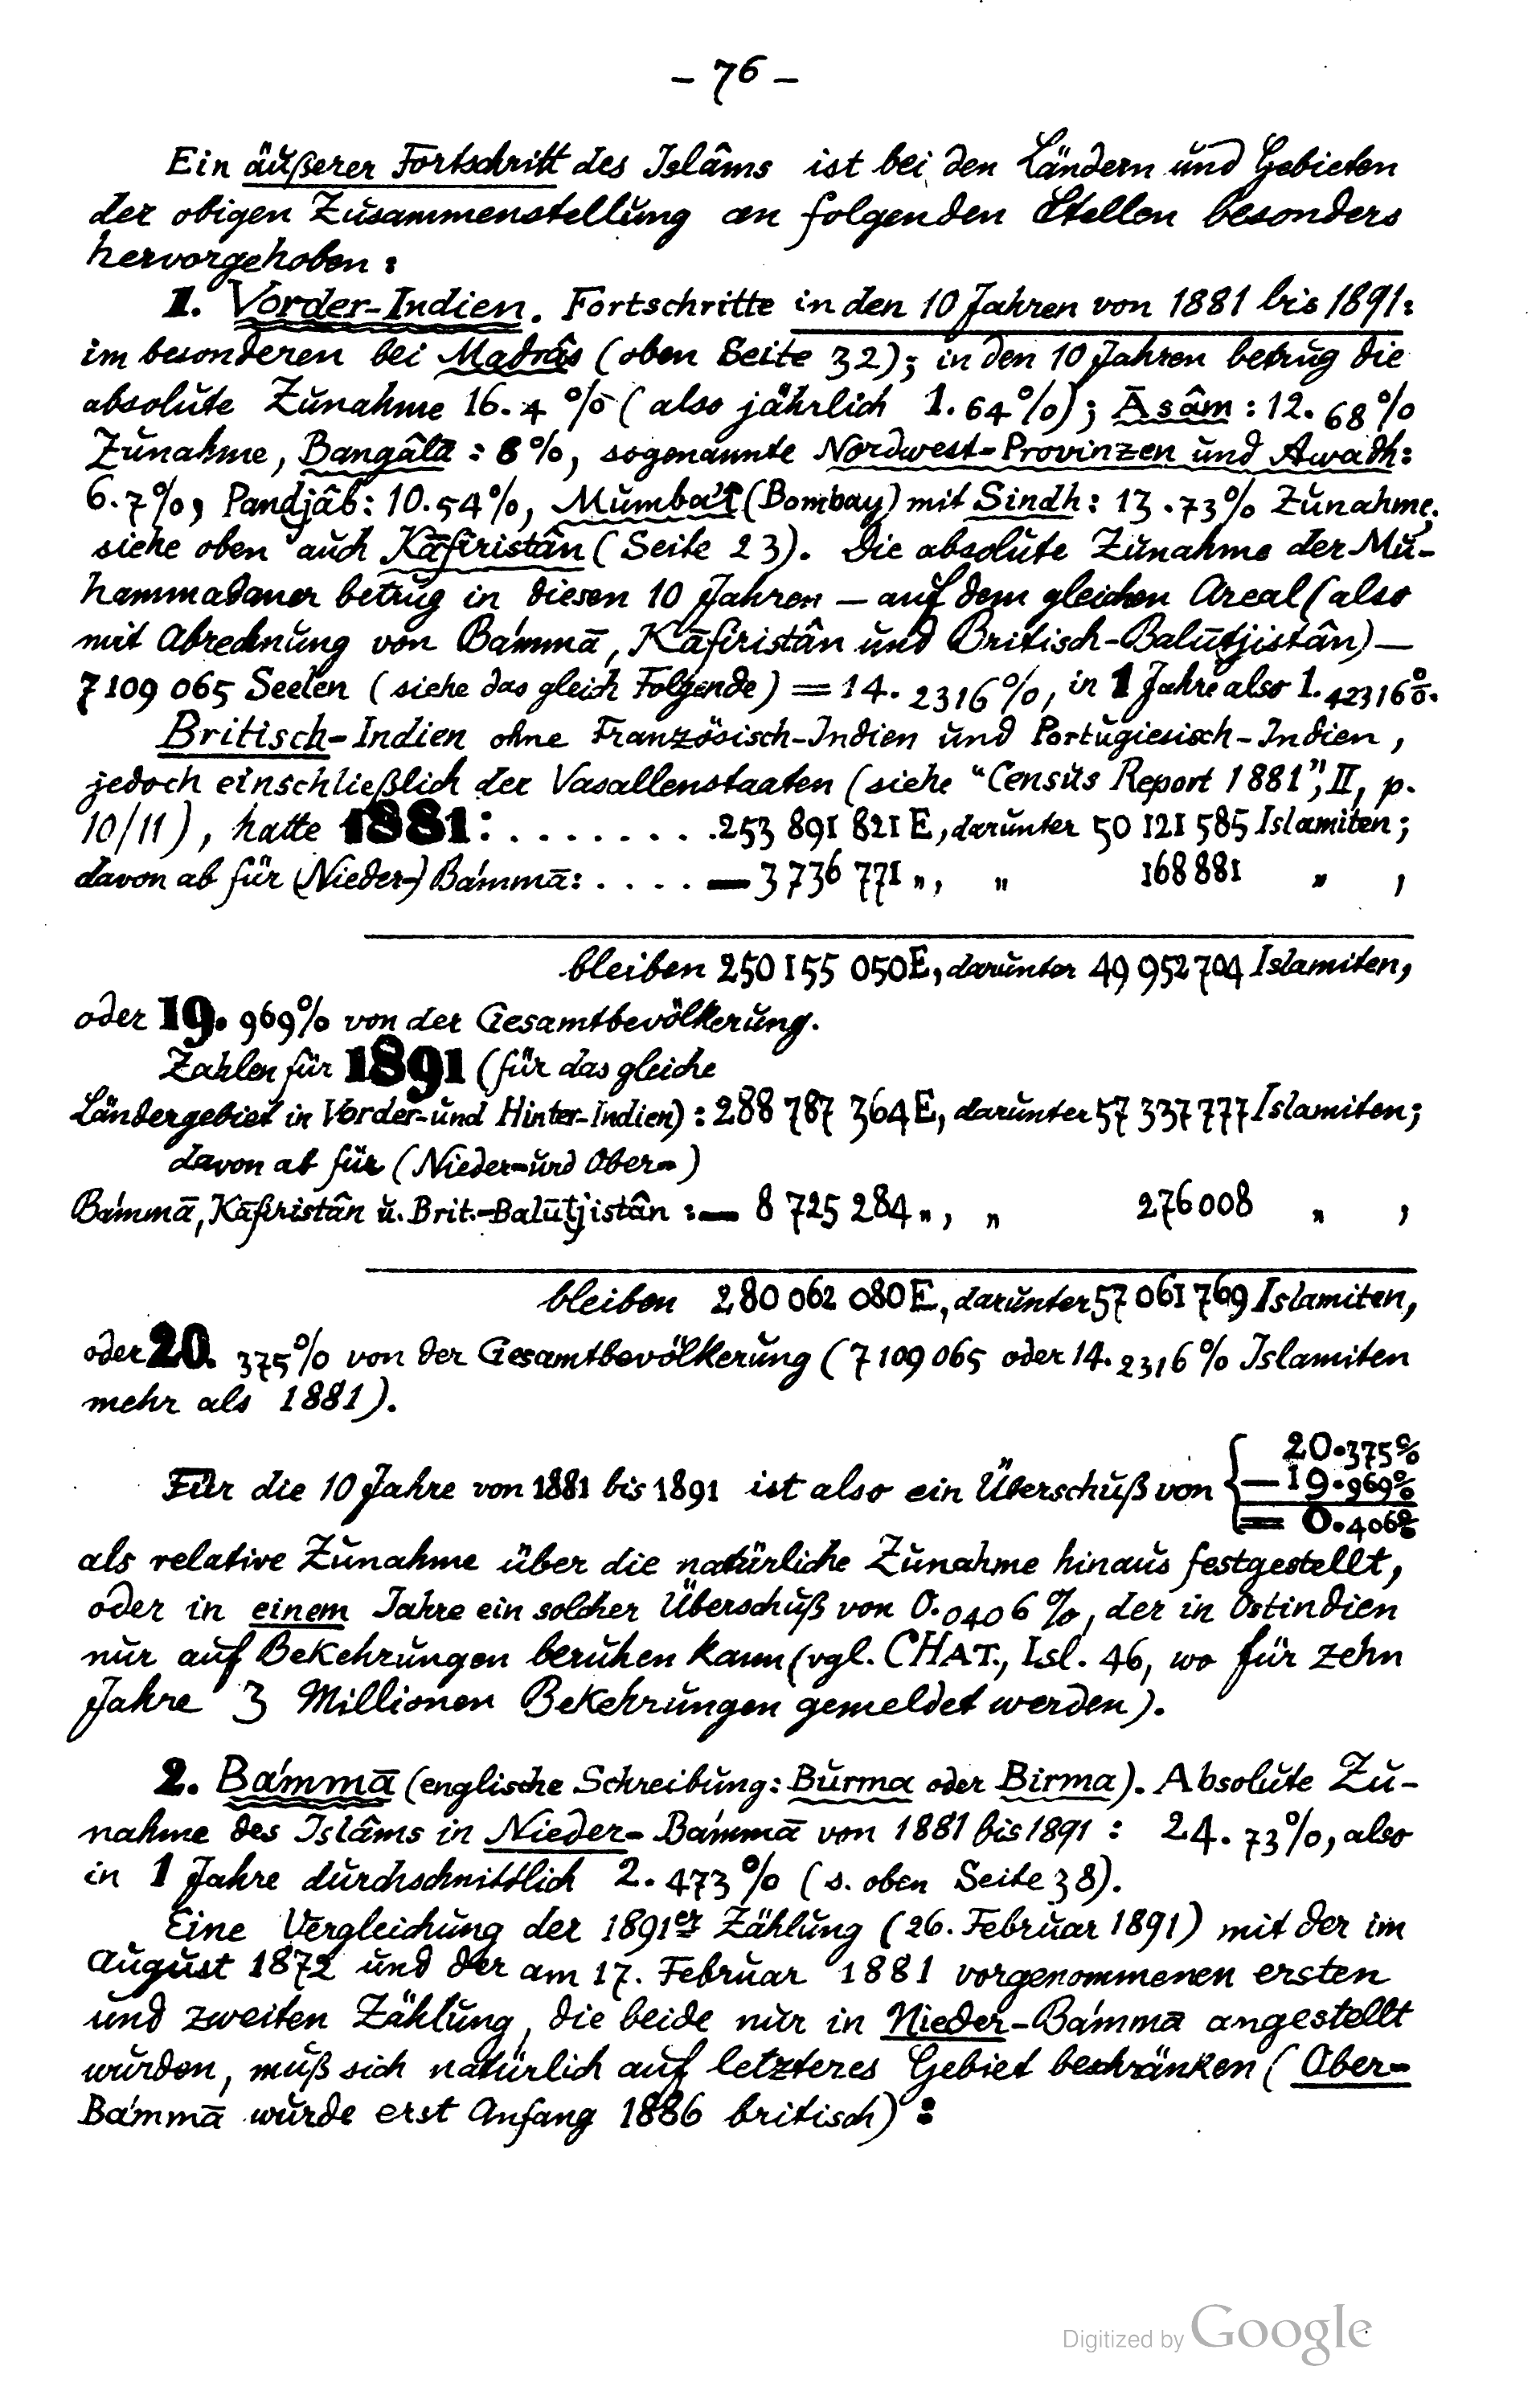 – 76 –
Ein äußerer Fortschritt des Islâms ist bei den Ländern und Gebieten
der obigen Zusammenstellung an folgenden Stellen besonders
hervorgehoben:
1. Vorder-Indien. Fortschritte in den 10 Jahren von 1881 bis 1891:
im besonderen bei Madrâs (oben Seite 32); in den 10 Jahren betrug die
absolute Zunahme 16.4 % (also jährlich 1.64 %); Āsâm: 12.68 %
Zunahme, Bangâlā: 8 %, sogenannte Nordwest-Provinzen und Awadh:
6.7 %, Pandjâb: 10.54 %, Mumba'ī (Bombay) mit Sindh: 13.73 % Zunahme.
siehe oben auch Kāfiristân (Seite 23). Die absolute Zunahme der Mu-
hammadaner betrug in diesen 10 Jahren — auf dem gleichen Areal (also
mit Abrechnung von Bámmā, Kāfiristân und Britisch-Balūtjistân) —
7 109 065 Seelen (siehe das gleich Folgende) = 14.2316 %, in 1 Jahre also 1.42316 %.
Britisch-Indien ohne Französisch-Indien und Portugiesisch-Indien,
jedoch einschließlich der Vasallenstaaten (siehe "Census Report 1881", II, p.
10/11), hatte 1881: . . . . . . . . 253 891 821 E, darunter 50 121 585 Islamiten;
davon ab für (Nieder-) Bámmā: . . . . — 3 736 771 „, „ 168 881 „ ,
bleiben 250 155 050 E, darunter 49 952 704 Islamiten,
oder 19.969 % von der Gesamtbevölkerung.
Zahlen für 1891 (für das gleiche
Ländergebiet in Vorder- und Hinter-Indien): 288 787 364 E, darunter 57 337 777 Islamiten;
davon ab für (Nieder- und Ober-)
Bámmā, Kāfiristân u. Brit.-Balūtjistân: — 8 725 284 „, „ 276 008 „ ,
bleiben 280 062 080 E, darunter 57 061 769 Islamiten,
oder 20.375 % von der Gesamtbevölkerung (7 109 065 oder 14.2316 % Islamiten
mehr als 1881).
20.375 %
Für die 10 Jahre von 1881 bis 1891 ist also ein Überschuß von { — 19.969 %
= 0.406 %
als relative Zunahme über die natürliche Zunahme hinaus festgestellt,
oder in einem Jahre ein solcher Überschuß von 0.0406 %, der in Ostindien
nur auf Bekehrungen beruhen kann (vgl. CHAT., Isl. 46, wo für zehn
Jahre 3 Millionen Bekehrungen gemeldet werden).
2. Bámmā (englische Schreibung: Burma oder Birma). Absolute Zu-
nahme des Islâms in Nieder-Bámmā von 1881 bis 1891: 24.73 %, also
in 1 Jahre durchschnittlich 2.473 % (s. oben Seite 38).
Eine Vergleichung der 1891er Zählung (26. Februar 1891) mit der im
August 1872 und der am 17. Februar 1881 vorgenommenen ersten
und zweiten Zählung, die beide nur in Nieder-Bámmā angestellt
wurden, muß sich natürlich auf letzteres Gebiet beschränken (Ober-
Bámmā wurde erst Anfang 1886 britisch):
Digitized by Google